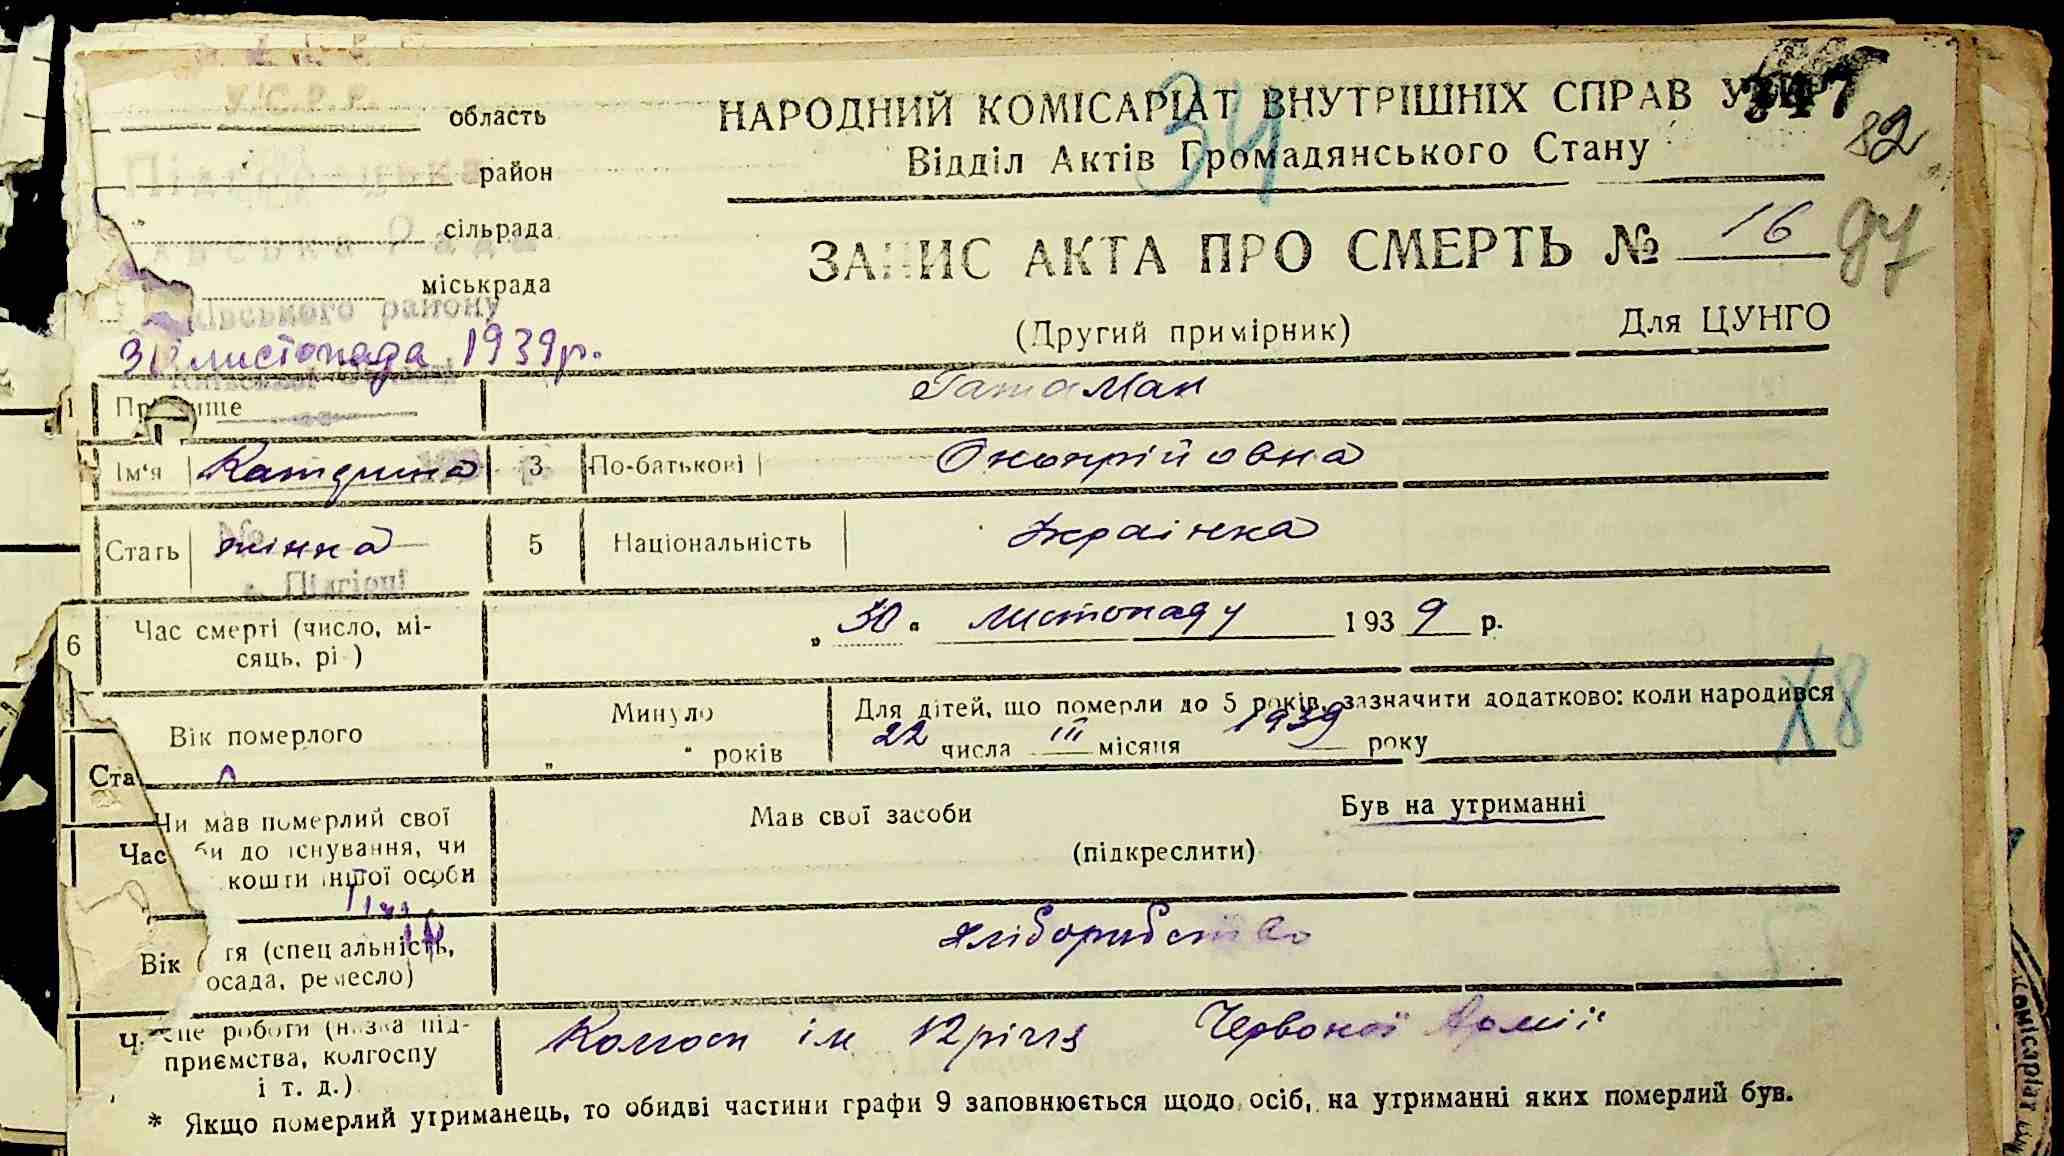 У.С.Р.Р.
область
НАРОДНИЙ КОМІСАРІАТ ВНУТРІШНІХ СПРАВ
34
82
район
Відділ Актів Громадянського Стану
сільрада
ЗАПИС АКТА ПРО СМЕРТЬ № 16
97
міськрада
івського району
(Другий примірник)
Для ЦУНГО
листопада 1939р.
1 Прізвище Гатаман
Ім'я Катерина 3 По-батькові Онопрійовна
Стать жінка 5 Національність Українка
с. Підгірці
6 Час смерті (число, мі-
сяць, рі ) „ 30 “ листопаду 1939 р.
Вік померлого
Минуло
„ “ років
Для дітей, що померли до 5 років, зазначити додатково: коли народився
22 числа III місяця 1939 року
Х8
Ста
Чи мав померлий свої
би до існування, чи
кошти іншої особи
Мав свої засоби
Був на утриманні
(підкреслити)
Час
тя (спеціальність,
осада, ремесло)
хліборобство
Вік
це роботи (назва під-
приємства, колгоспу
і т. д.)
Колгосп ім 12 річчя Червоної Армії
* Якщо померлий утриманець, то обидві частини графи 9 заповнюється щодо осіб, на утриманні яких померлий був.